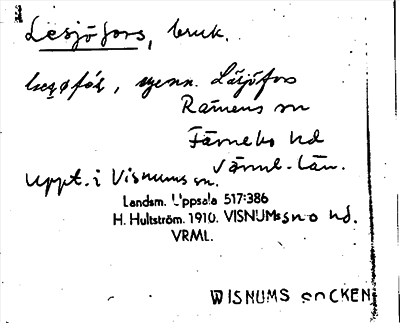 Lesjöfors, bruk.
lesøfòs, gem. Läsjöfors
Rämens sn
Färnebo hd
Värml. län.
Uppt. i Visnums sn.
Landsm. Uppsala 517:386
H. Hultström. 1910. VISNUMS sn o hd.
VRML.
WISNUMS SOCKEN